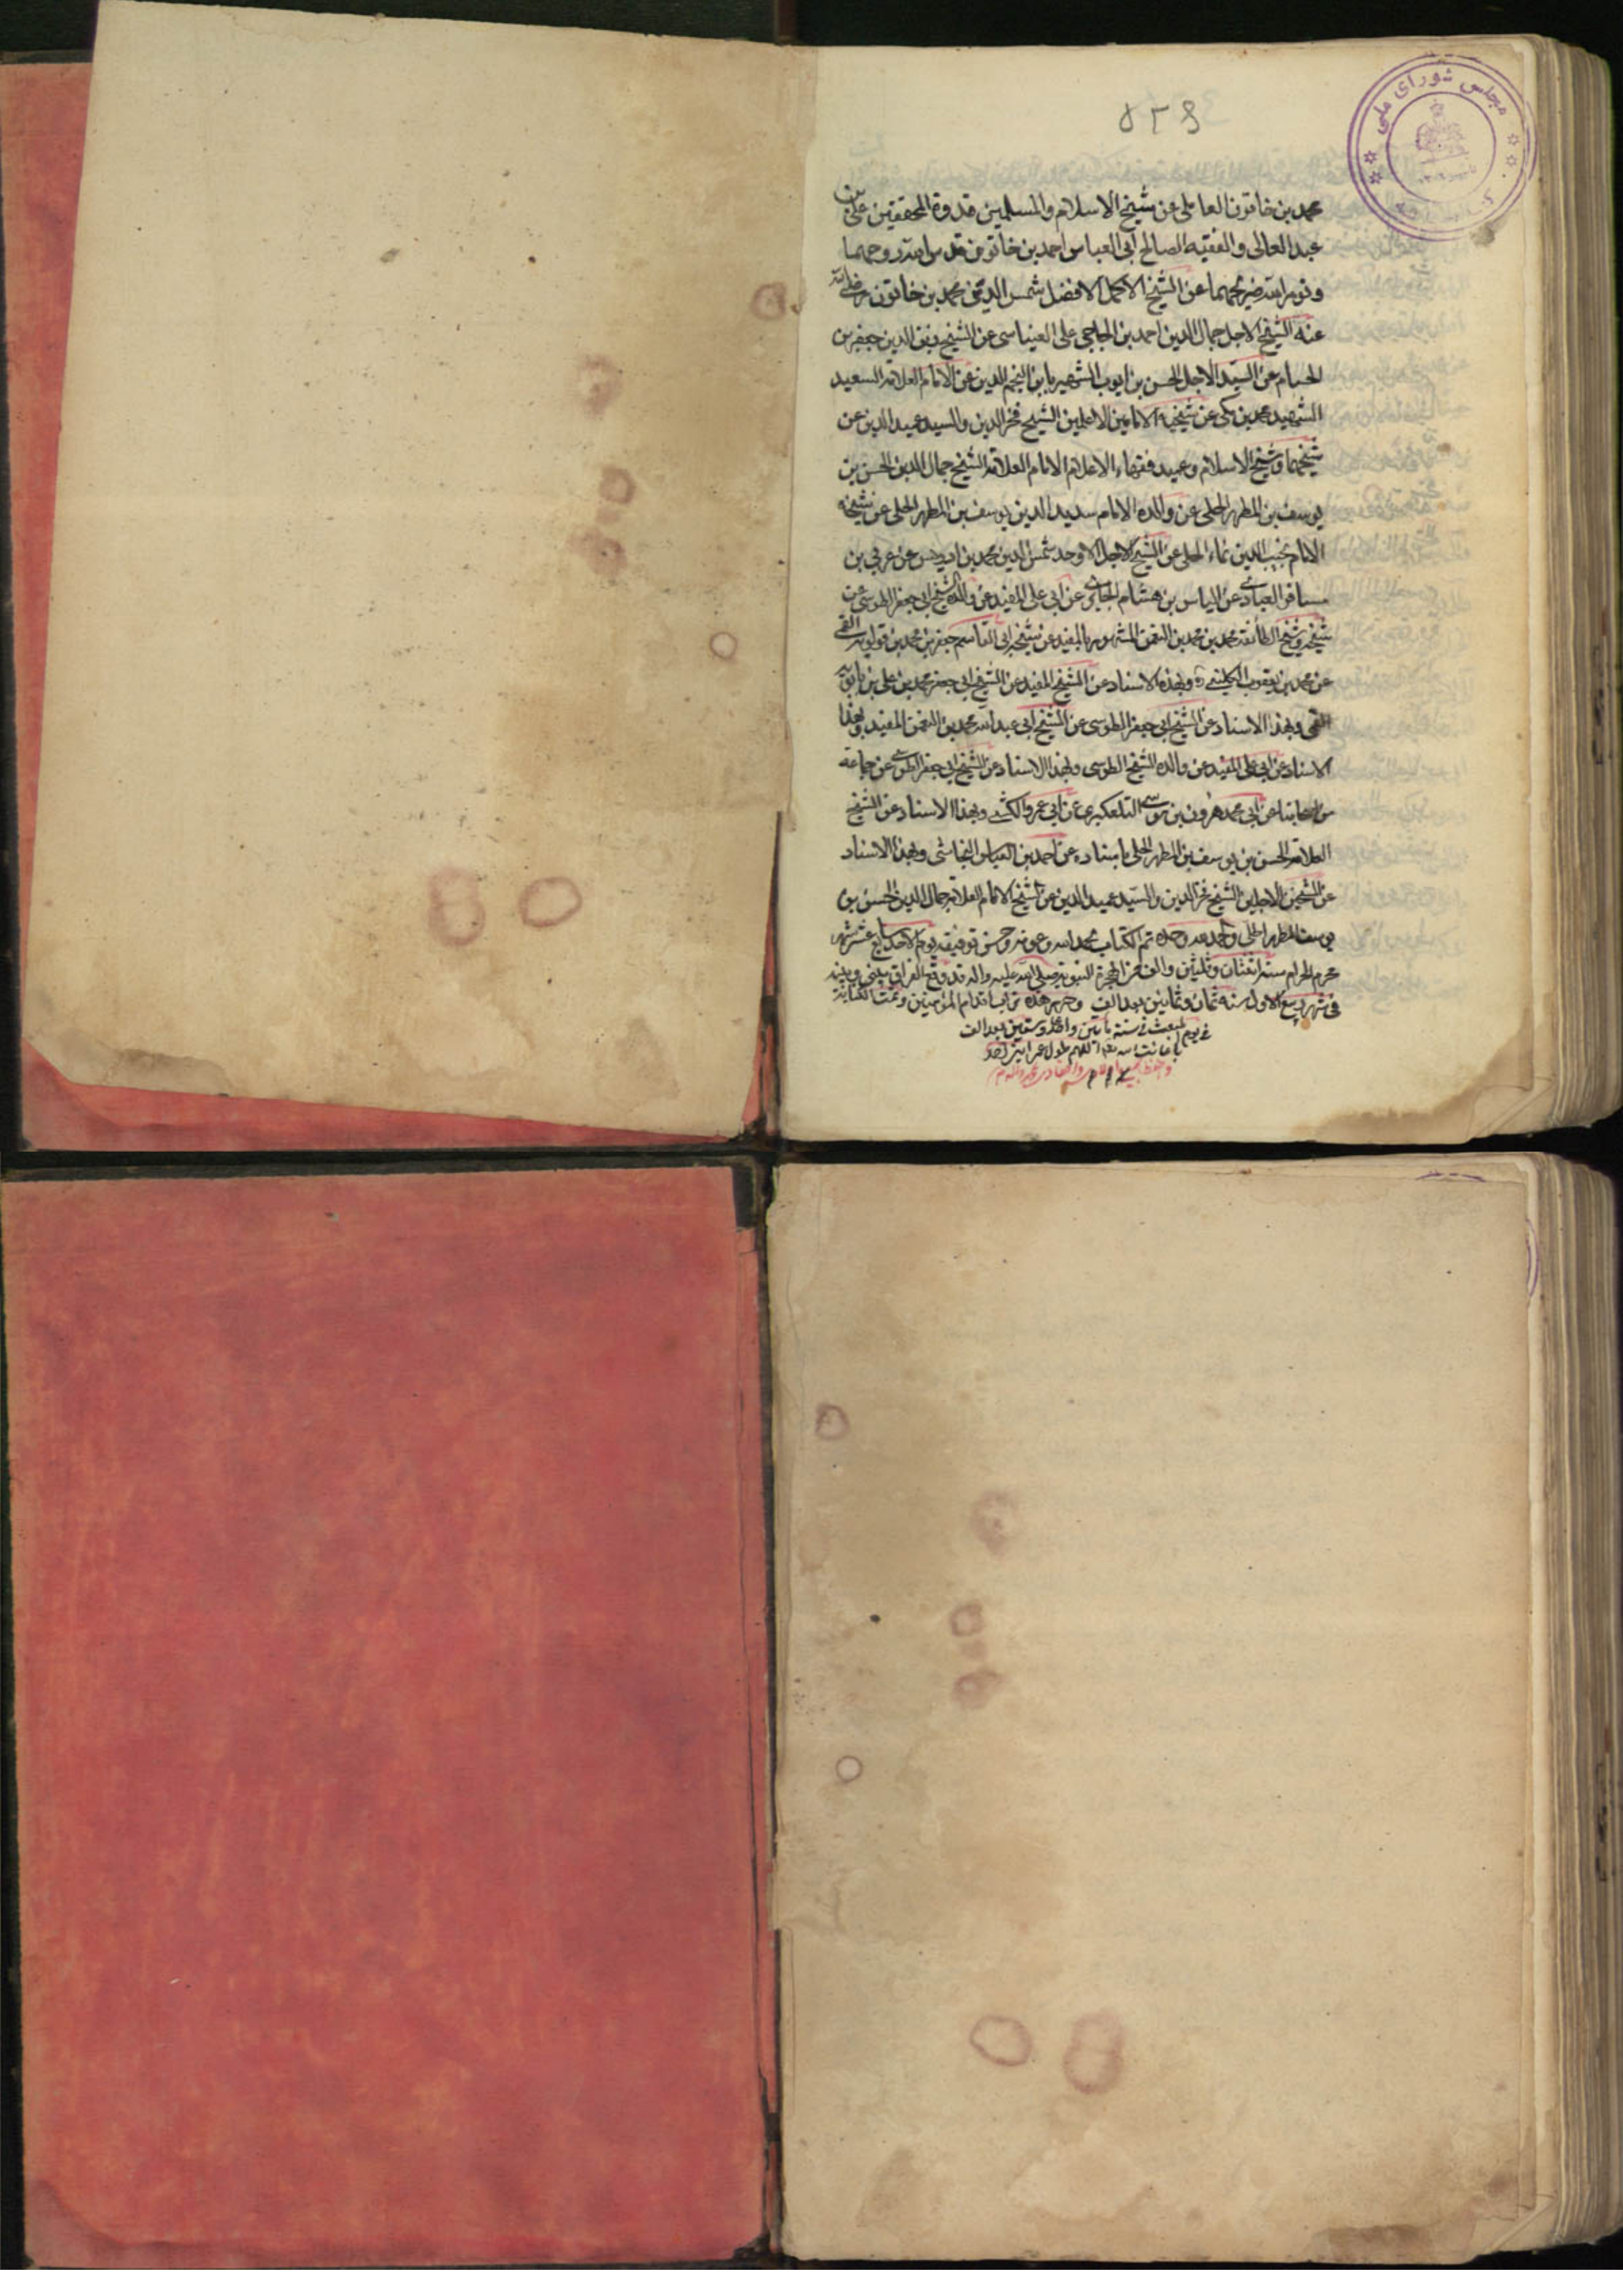 مجلس شورای ملی
۵۳۹
محمد بن خاتون العاملی عن شیخ الاسلام والمسلمین قدوة المحققین علی بن
عبد العالی والفقیه الصالح ابی العباس احمد بن خاتون قدس الله روحهما
ونور الله ضریحهما عن الشیخ الاکمل الافضل شمس الدین محمد بن خاتون رضی الله
عنه الشیخ الاجل جمال الدین احمد بن الحاجی علی العیناسی عن الشیخ زین الدین جعفر بن
الحسام عن السید الاجل الحسن بن ایوب الشهیر بابن النجم الدین عن الامام العلامة السعید
الشهید محمد بن مکی عن شیخیه الامامین الاعلمین الشیخ فخر الدین والسید عمید الدین عن
شیخهما شیخ الاسلام وعمید فقهاء الاعلام الامام العلامة الشیخ جمال الدین الحسن بن
یوسف بن المطهر الحلی عن والده الامام سدید الدین یوسف بن المطهر الحلی عن شیخه
الامام نجیب الدین نماء الحلی عن الشیخ الاجل الاوحد شمس الدین محمد بن ادریس عن عربی بن
مسافر العبادی عن الیاس بن هشام الحایری عن ابی علی المفید عن والده الشیخ ابی جعفر الطوسی عن
شیخه شیخ الطائفة محمد بن محمد بن النعمن المشهور بالمفید عن شیخه ابی القاسم جعفر بن محمد بن قولویه القمی
عن محمد بن یعقوب الکلینی ره وبهذه الاسناد عن الشیخ المفید عن الشیخ ابی جعفر محمد بن علی بن بابویه
القمی وبهذا الاسناد عن الشیخ ابی جعفر الطوسی عن الشیخ ابی عبد الله محمد بن النعمن المفید وبهذا
الاسناد عن ابی علی المفید عن والده الشیخ الطوسی وبهذا الاسناد عن الشیخ ابی جعفر الطوسی عن جماعة
من اصحابنا عن ابی محمد هرون بن موسی التلعکبری عن ابی عمرو الکشی وبهذا الاسناد عن الشیخ
العلامة الحسن بن یوسف بن المطهر الحلی باسناده عن احمد بن العباس النجاشی وبهذا الاسناد
عن الشیخین الاجلین الشیخ فخر الدین والسید عمید الدین عن الشیخ الامام العلامة جمال الدین الحسن بن
یوسف المطهر الحلی والحمد لله وحده تم الکتاب بحمد الله وعونه وحسن توفیقه یوم الاحد سابع عشر شهر
محرم الحرام سنه اثنتان وثلثین والف من الهجرة النبویة صلی الله علیه واله قد وقع الفراق بینی وبینه
فی شهر ربیع الاول سنه ثمان وثمانین بعد الالف وحرره هذه تراب اقدام المؤمنین وتمت الکتابة
فی یوم المبعث فی سنة مأتین واحد وستین بعد الف
اللهم طول عمر